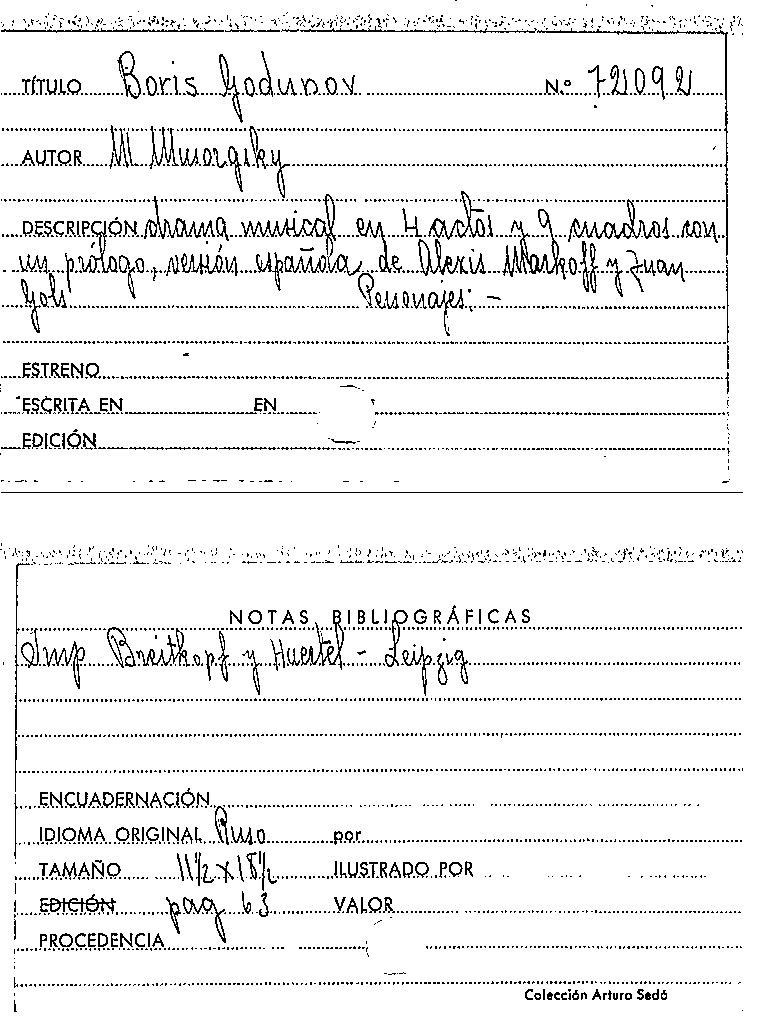 TÍTULO Boris Godunov N.º 72092
AUTOR M Musorgsky
DESCRIPCIÓN drama musical en 4 actos y 9 cuadros con
un prólogo, versión española, de Alexis Markoff y Juan
Gols Personajes: -
ESTRENO
ESCRITA EN EN
EDICIÓN
NOTAS BIBLIOGRÁFICAS
Imp Breitkopf y Huertel - Leipzig
ENCUADERNACIÓN
IDIOMA ORIGINAL Ruso por
TAMAÑO 11½ x 18½ ILUSTRADO POR
EDICIÓN pag 63 VALOR
PROCEDENCIA
Colección Arturo Sedó